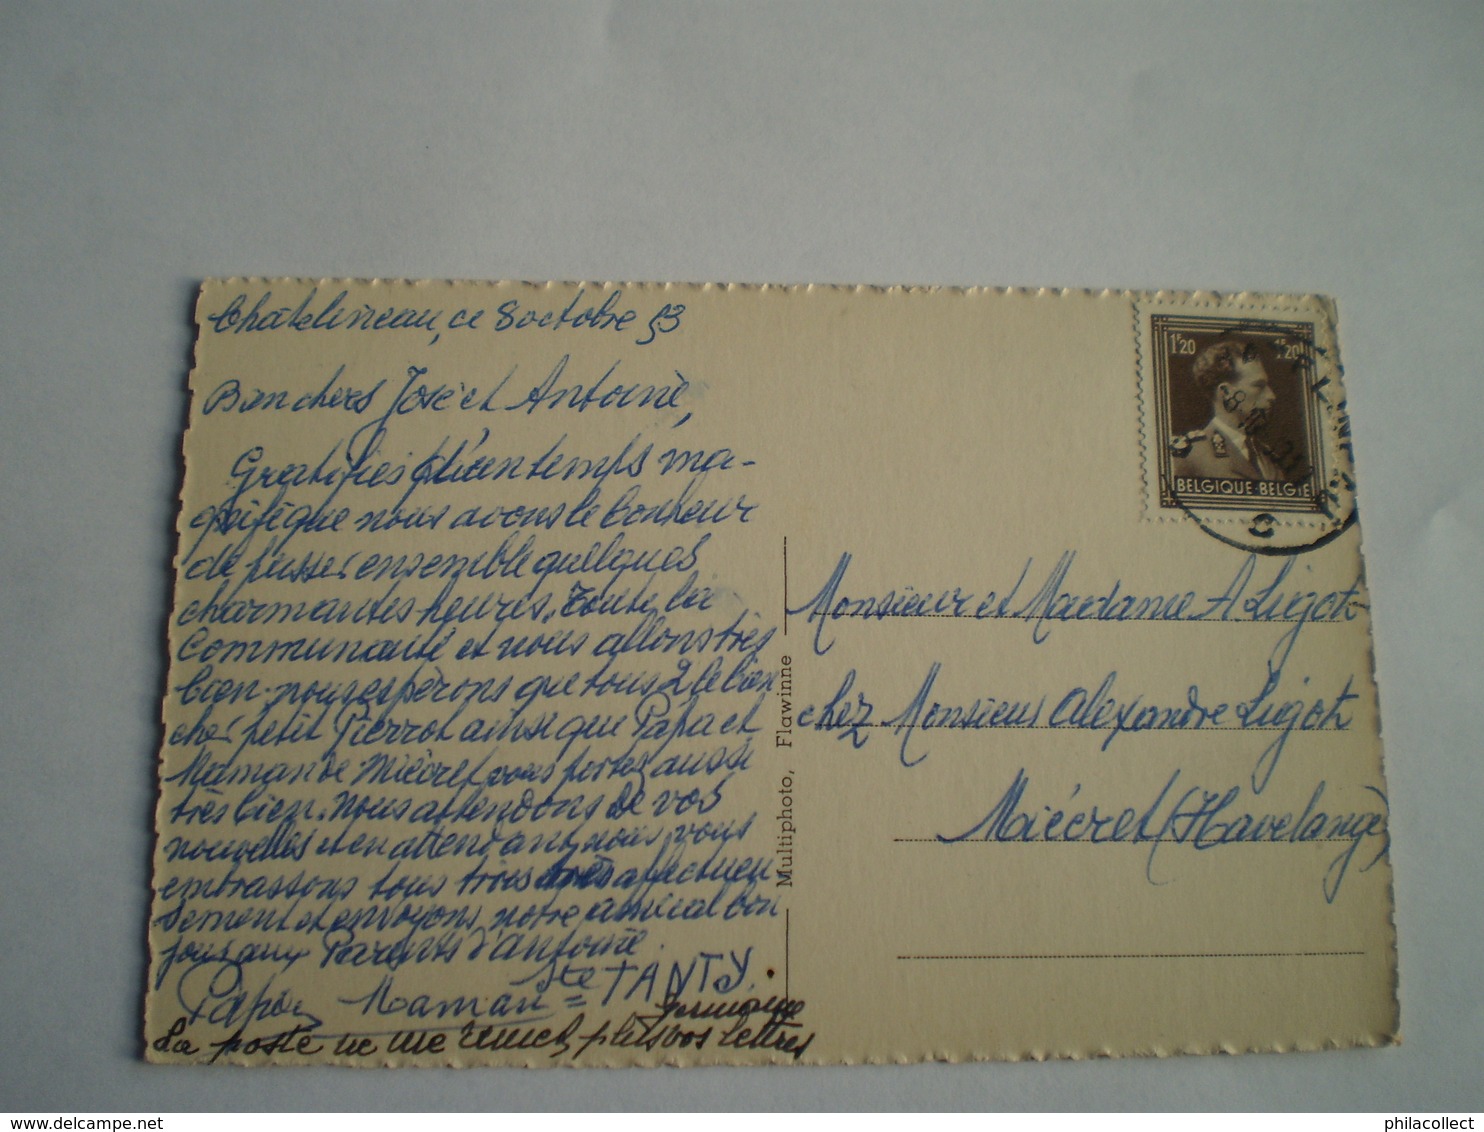 Châtelineau, ce 8 octobre 53
Bien chers José et Antoine,
Gratifiés d'un temps ma-
gnifique nous avons le bonheur
de passer ensemble quelques
charmantes heures. Toute la
Communauté et nous allons très
bien. nous espérons que tous 2 le bien
cher petit Pierrot ainsi que Papa et
Maman de Miécret vous portez aussi
très bien. Nous attendons de vos
nouvelles et en attendant, nous vous
embrassons tous trois très affectueu-
sement et envoyons notre amical bon
jour aux Parents d'Antoine.
Papa Maman = TANTY.
Germaine
La poste ne me remet plus vos lettres
1F20
1F20
BELGIQUE-BELGIE
Multiphoto, Flawinne
Monsieur et Madame A. Liégot
chez Monsieur Alexandre Liégot
Miécret (Havelange)
delcampe.net
philacollect